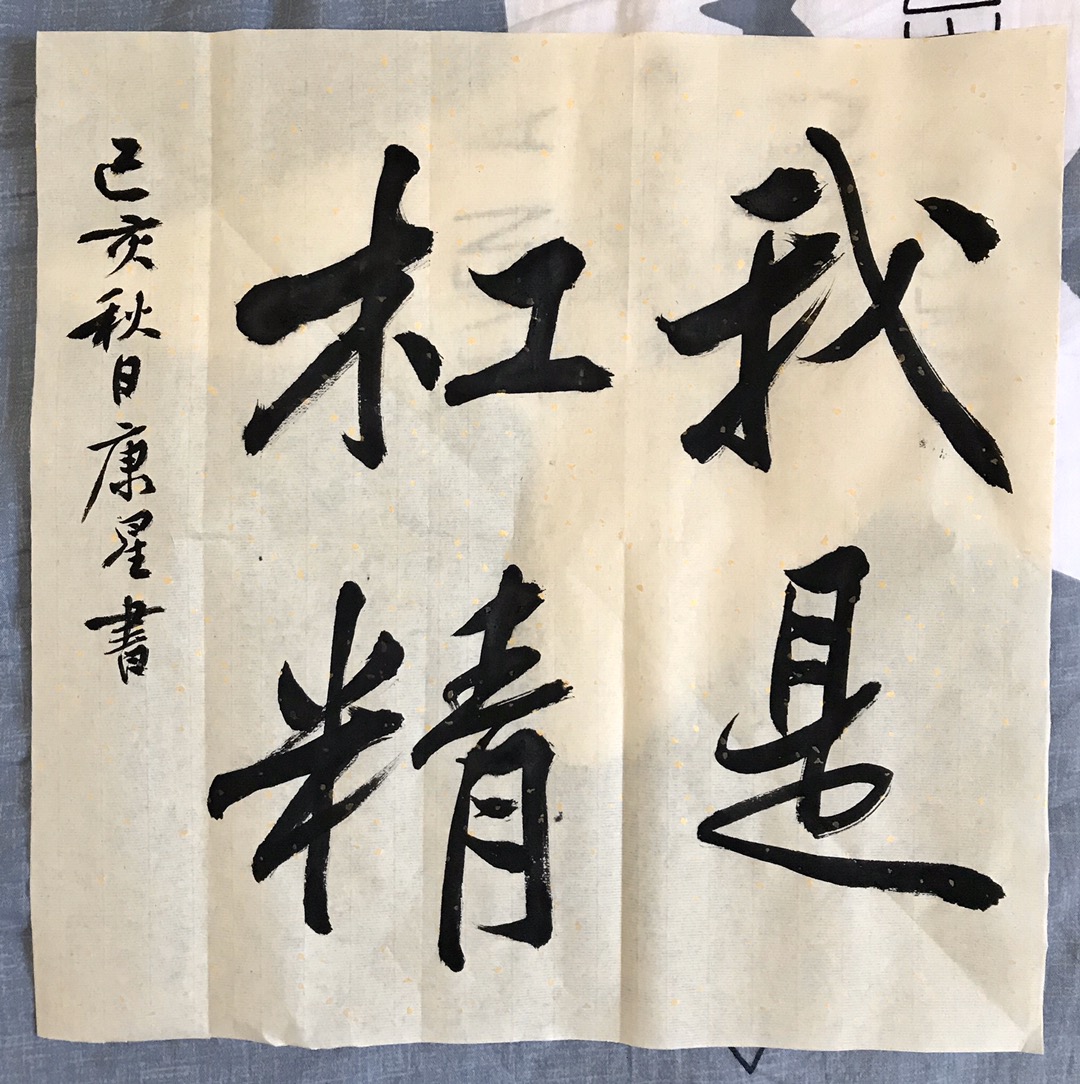 我是
杠精
己亥秋日康星書